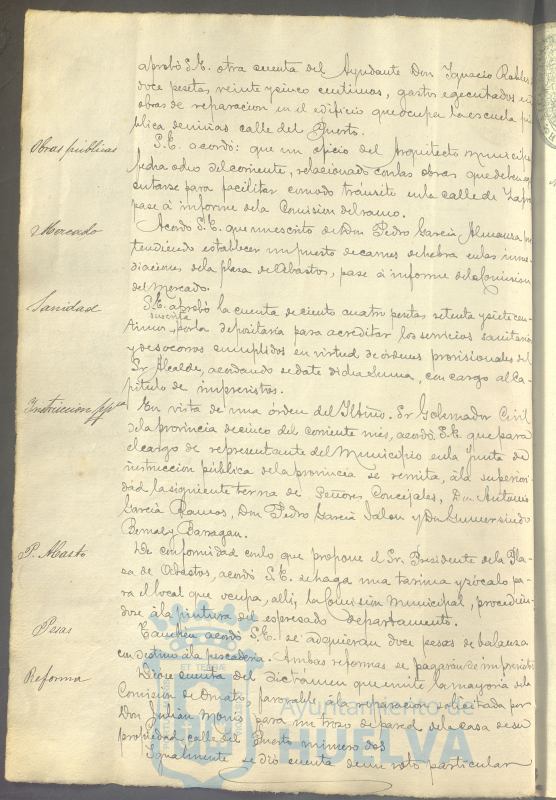 aprobó S.E. otra cuenta del Ayudante Don Ignacio Robles
doce pesetas veinte y cinco centimos, gastos egecutados en
obras de reparacion en el edificio que ocupa la escuela pú
blica de niñas calle del Puerto.
Obras públicas
S.E. acordó: que un oficio del Arquitecto municipal
fecha ocho del corriente, relacionado con las obras que deben
cutarse para facilitar comodo tránsito en la calle de
pase á informe de la Comision del ramo.
Mercado
Acordó S.E. que un escrito de Don Pedro Garcia Almansa
tendiendo establecer un puesto de carnes de hebra en las inme
diaciones de la plaza de Abastos, pase á informe de la Comision
del Mercado.
Sanidad
S.E. aprobó la cuenta de ciento cuatro pesetas setenta y siete cen
suscrita
timos, por la depositaria para acreditar los servicios sanitarios
y de socorros cumplidos en virtud de órdenes provisionales del
Sr Alcalde, acordando se date dicha suma, con cargo al Ca
pitulo de imprevistos.
Instruccion pp.ca
En vista de una órden del Iltmo. Sr Gobernador Civil
de la provincia de cinco del corriente mes, acordó S.E. que para
el cargo de representante del Municipio en la Junta de
instruccion pública de la provincia se remita, á la superiori
dad la siguiente terna de Señores Concejales, Don Antonio
Garcia Ramos, Don Pedro Garcia Jalon y Don Gumersindo
Bernal y Barragan.
P. Abasto
De conformidad con lo que propone el Sr. Presidente de la Pla
za de Abastos, acordó S.E. se haga una tarima y zócalo pa
ra el local que ocupa, allí, la Comision Municipal, procedien
dose á la pintura del espresado departamento.
Pesas
Tambien acordó S.E. se adquieran doce pesas de balanza
con destino á la pescaderia. Ambas reformas se pagarán de imprevistos
Reforma
Diose cuenta del dictámen que emite la mayoría de la
Comision de Ornato, favorable á la reparacion solicitada por
Don Julián Monis para un trozo de pared de la casa de su
propiedad calle del Puerto número dos
Igualmente se dió cuenta de un voto particular
ET TERRÆ
Ayuntamiento de
HUELVA